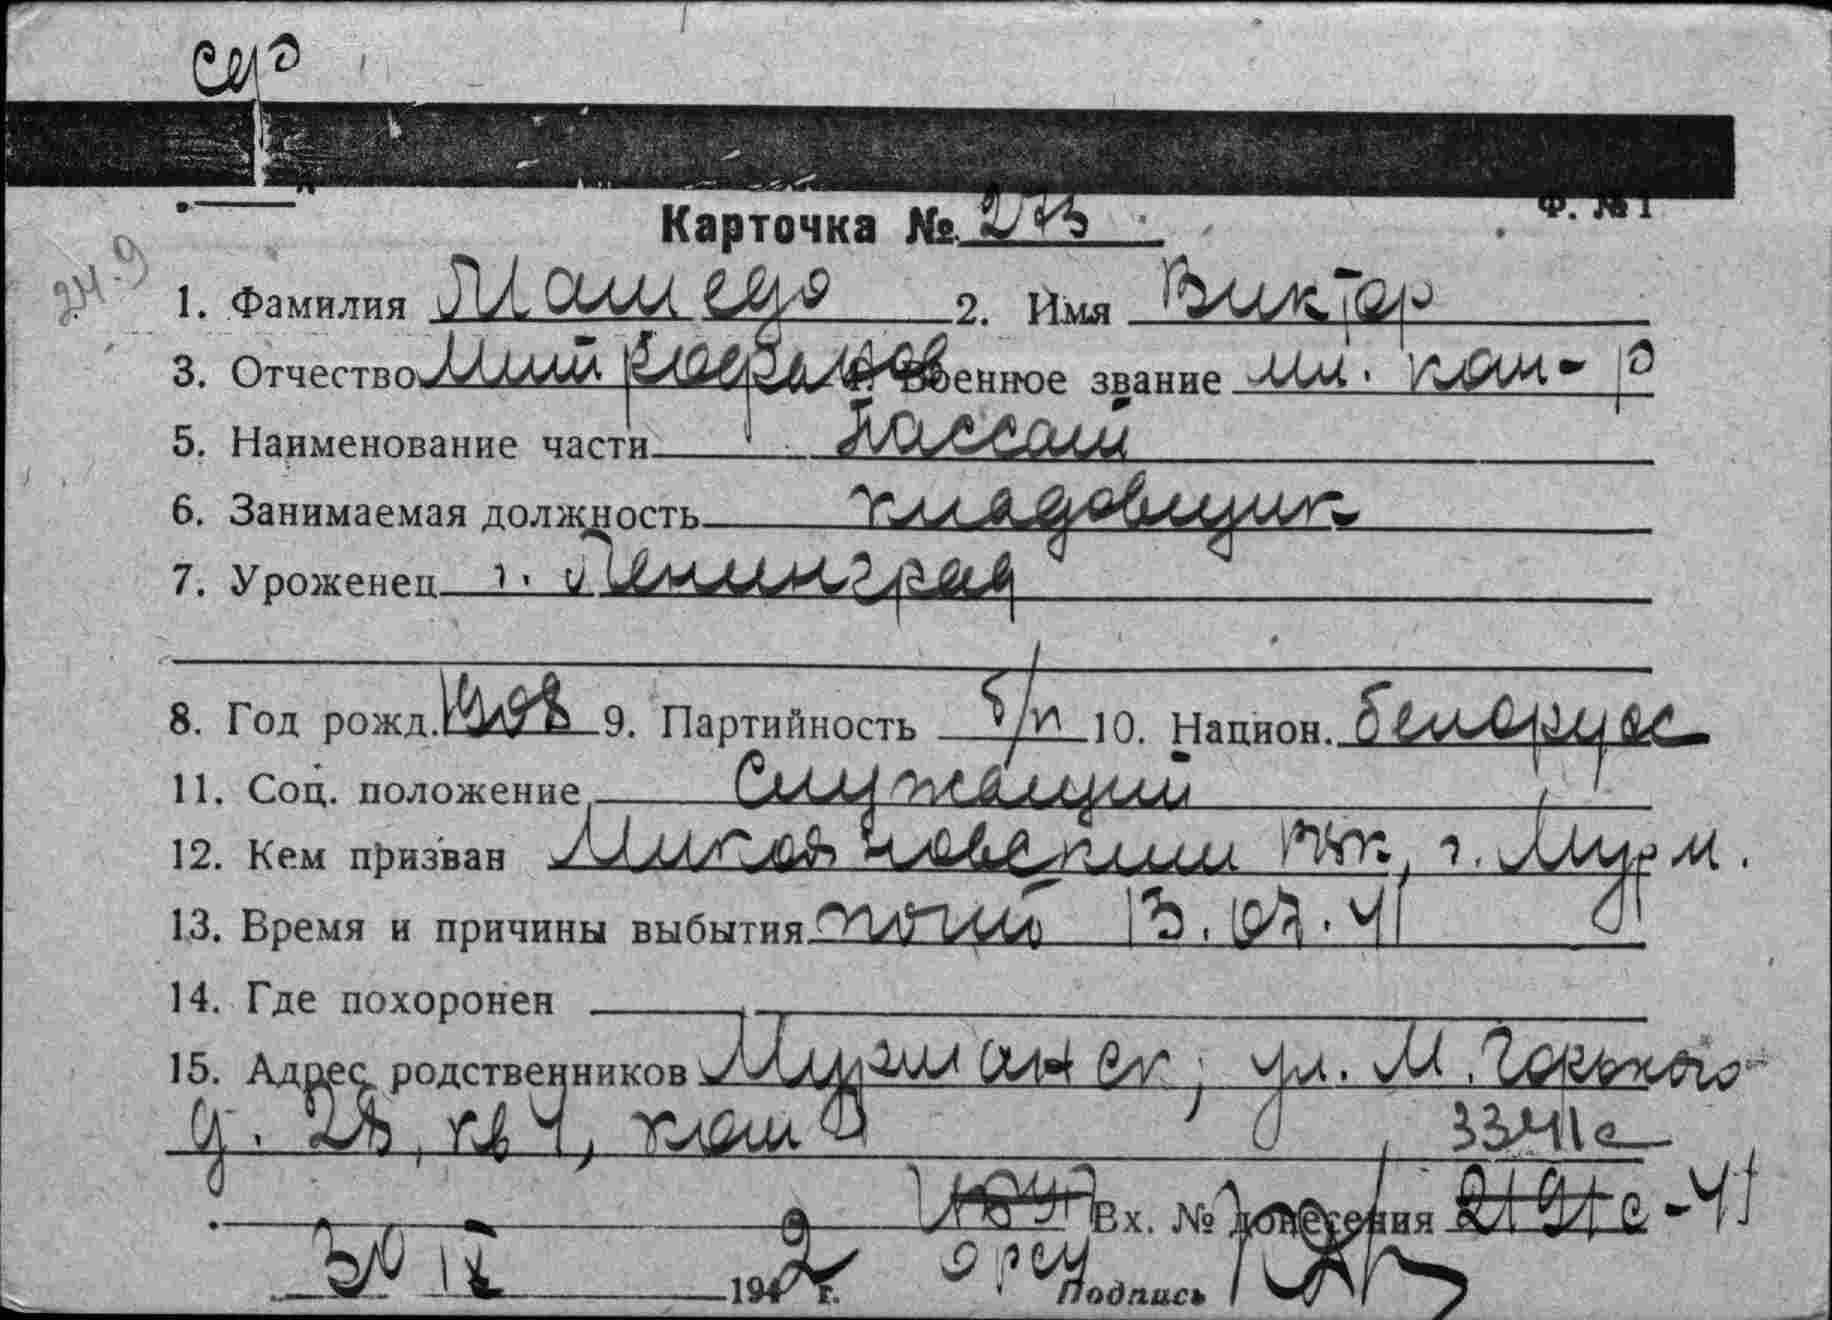 Ф. № 1
Карточка № 273
24.9
1. Фамилия Машедо 2. Имя Виктор
3. Отчество Митрофанов 4. Военное звание мл. ком-р
5. Наименование части Пассат
6. Занимаемая должность кладовщик
7. Уроженец г. Ленинград
8. Год рожд. 1908 9. Партийность б/п 10. Национ. белорус
11. Соц. положение Служащий
12. Кем призван Микояновским РВК, г. Мурм.
13. Время и причины выбытия погиб 13.07.41
14. Где похоронен
15. Адрес родственников Мурманск, ул. М. Горького
д. 28, кв 4, ком
33411с
Вх. № донесения 2191с-41
30 IX 1942 г. Подпись